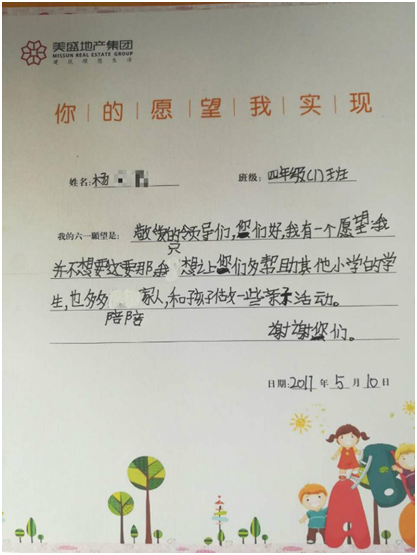 美盛地产集团
MISSUN REAL ESTATE GROUP
建筑理想生活
你的愿望我实现
姓名:杨
班级:四年级(1)班
我的六一愿望是:敬爱的领导们,您们好,我有一个愿望:我
并不想要这要那,我只想让您们多帮助其他小学的学
生,也多多陪陪家人,和孩子做一些亲子活动。
谢谢您们。
日期:2017年5月10日